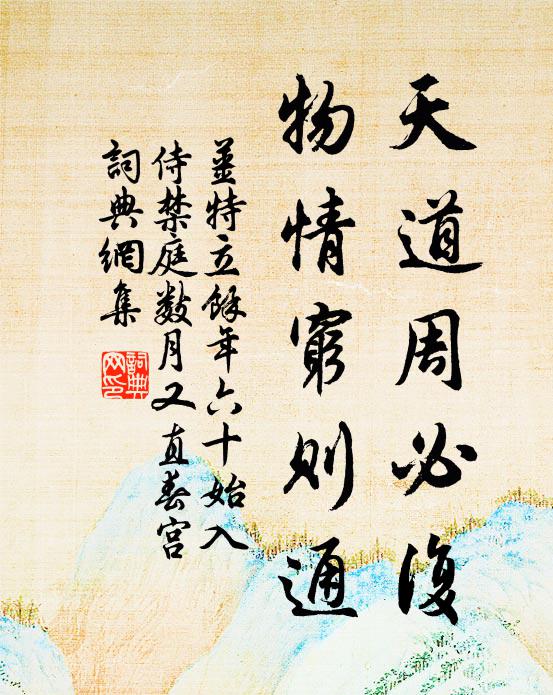 天道周必復
物情窮則通
姜特立餘年六十始入
侍禁庭數月又直春宮
詞典網集
詞典
網印